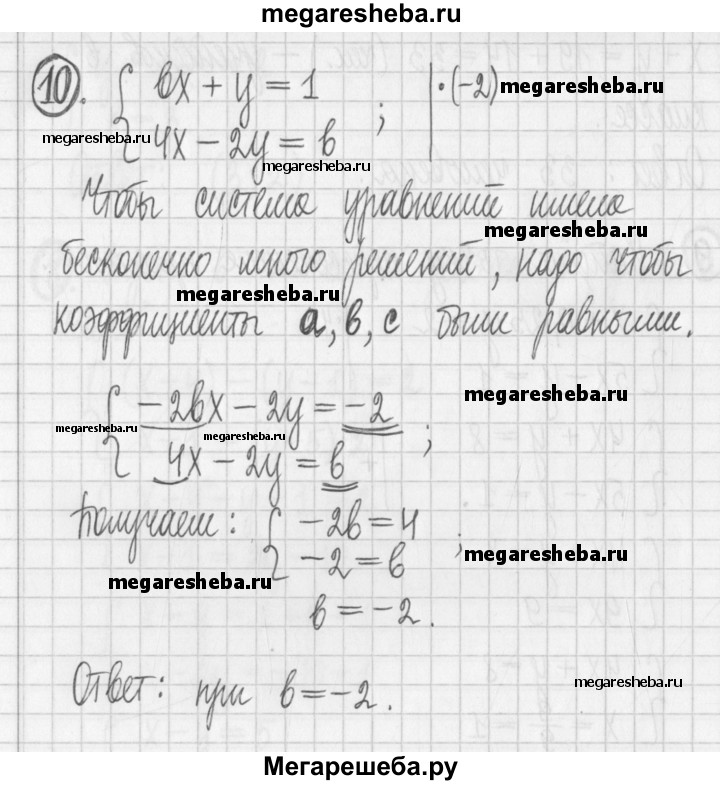 megaresheba.ru
10. { bx + y = 1 | · (-2) megaresheba.ru
megaresheba.ru { 4x - 2y = b ;
megaresheba.ru
Чтобы система уравнений имела
megaresheba.ru
бесконечно много решений, надо чтобы
megaresheba.ru
коэффициенты a, b, c были равными.
{ -2bx - 2y = -2 megaresheba.ru
megaresheba.ru megaresheba.ru ;
{ 4x - 2y = b
Получаем: { -2b = 4
{ -2 = b ; megaresheba.ru
megaresheba.ru
b = -2.
Ответ: при b = -2.
megaresheba.ru
Мегарешеба.ру